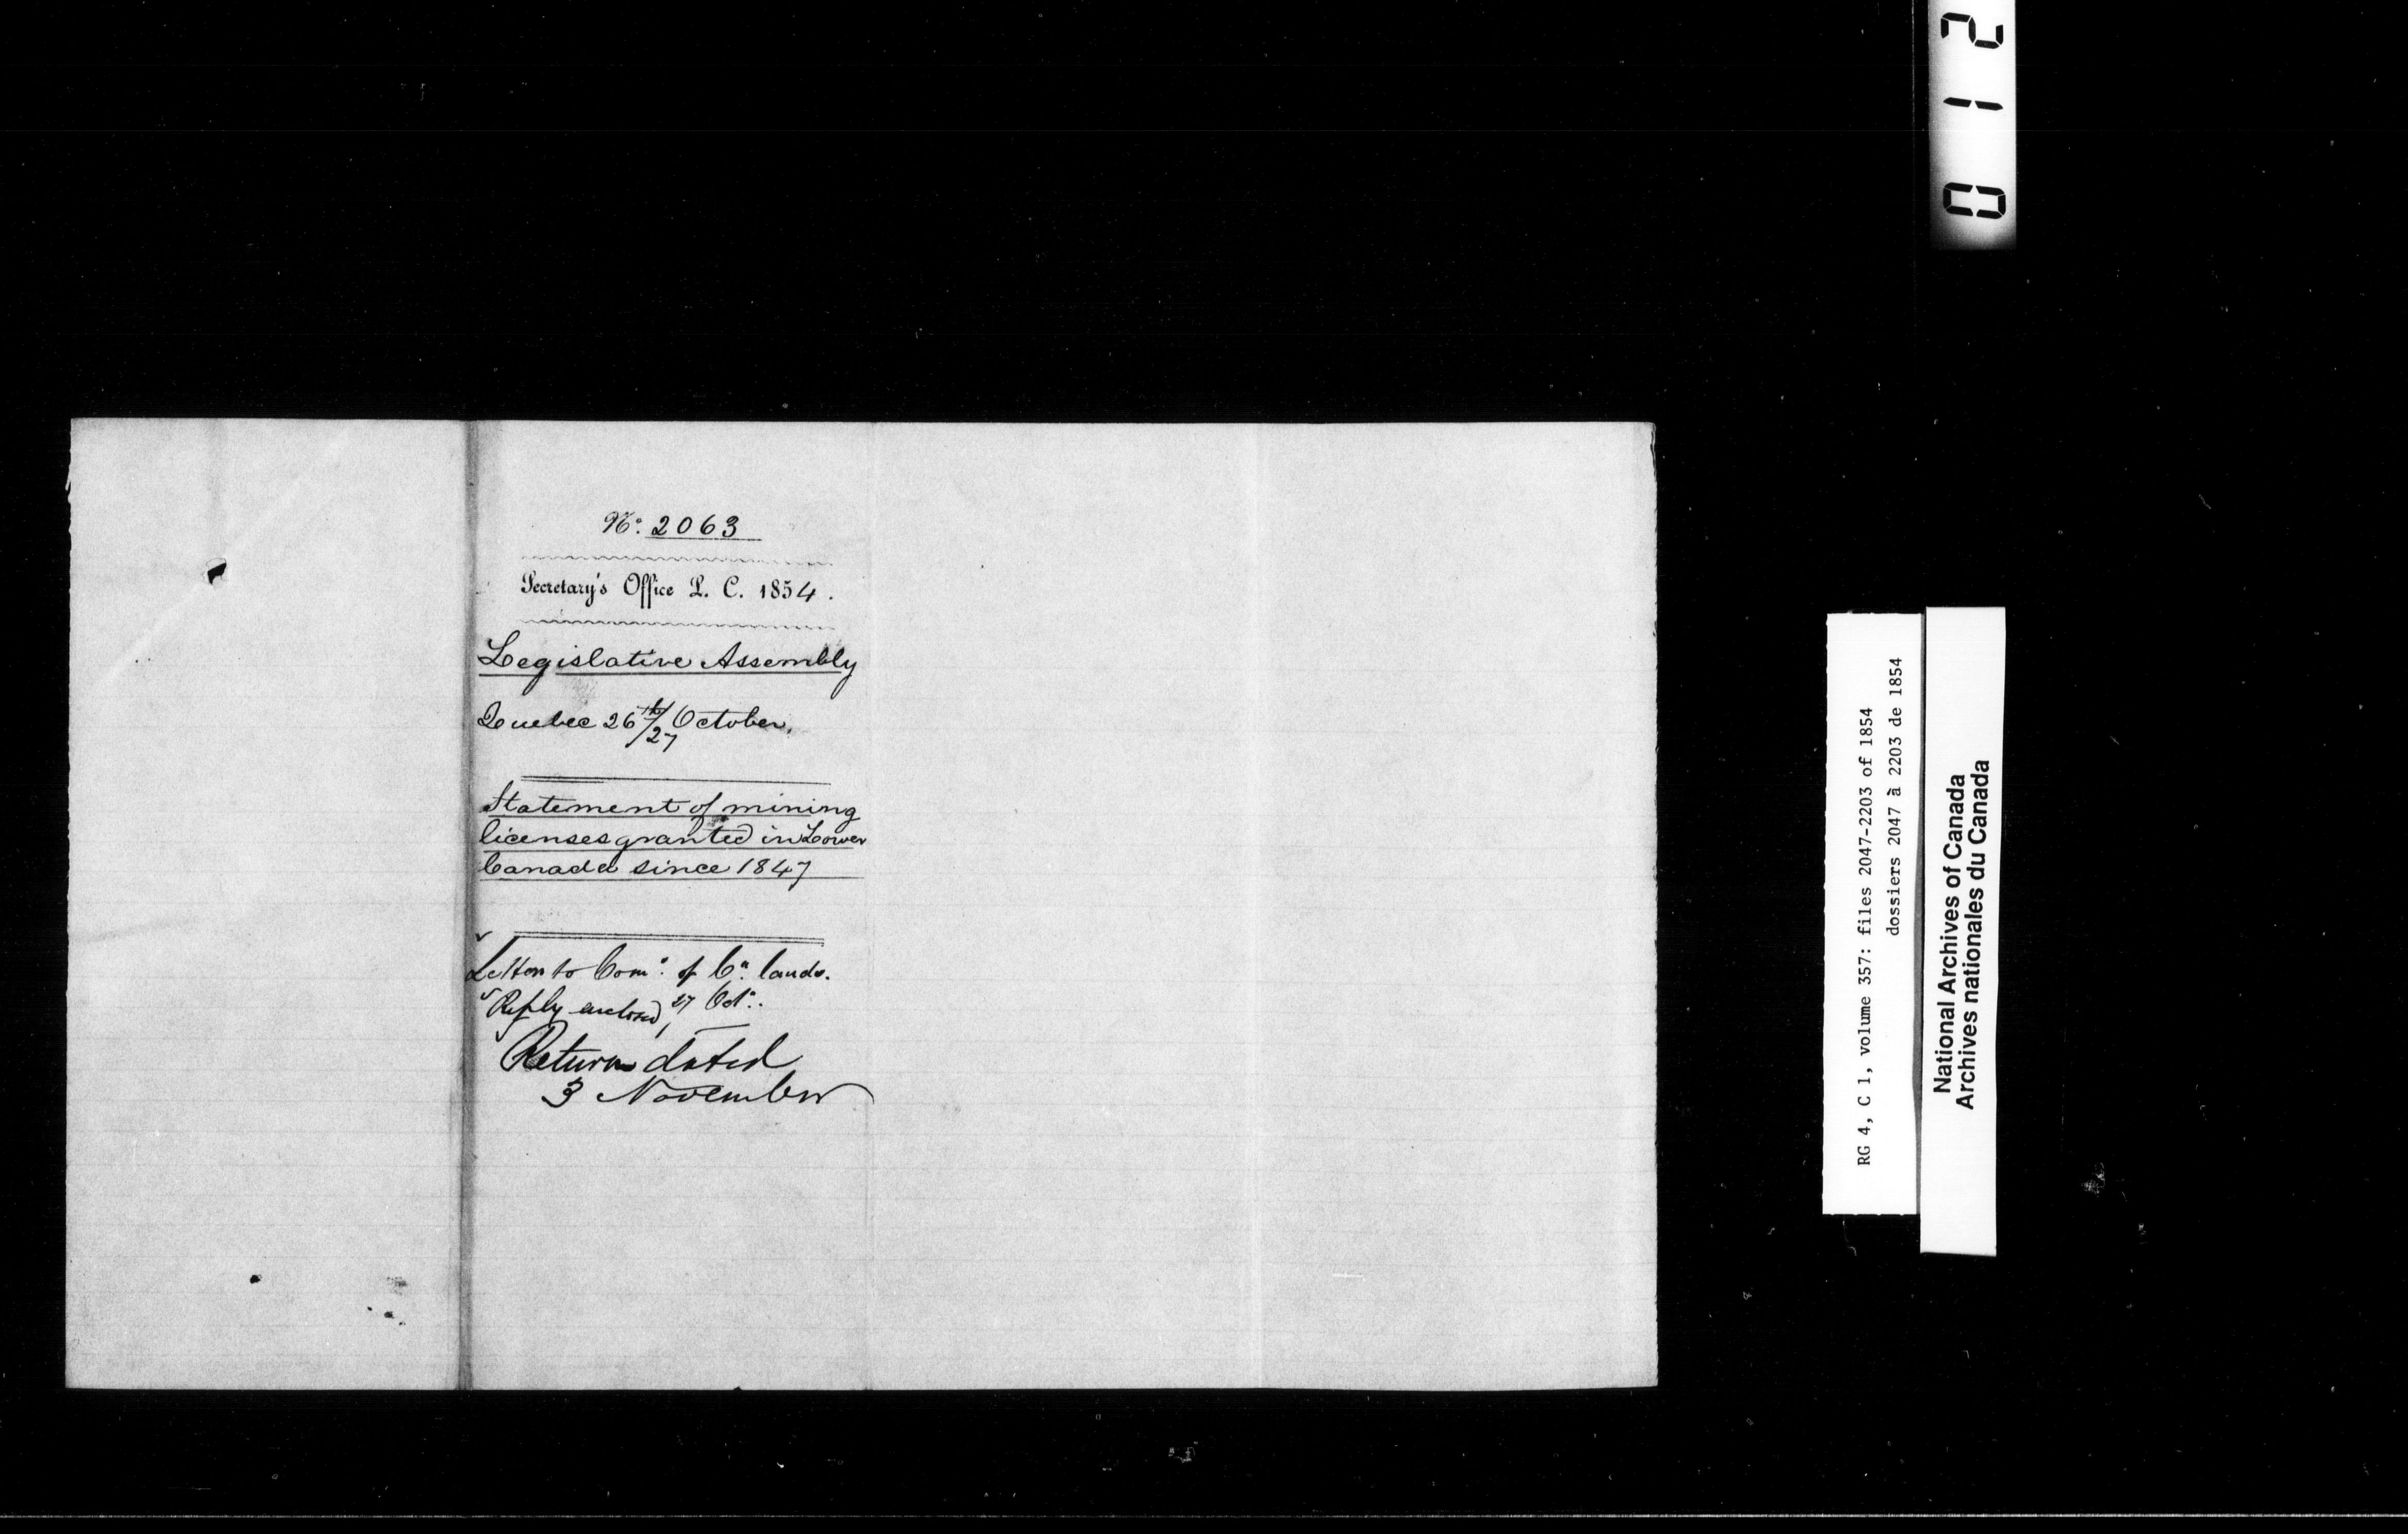 No. 2063
Secretary's Office L. C. 1854.
Legislative Assembly
Quebec 26th/27 October.
Statement of mining
licenses granted in Lower
Canada since 1847
Letter to Comr. of Cn. lands.
Reply enclosed, 27 Oct.
Return dated
3 November
012
RG 4, C 1, volume 357: files 2047-2203 of 1854
dossiers 2047 à 2203 de 1854
National Archives of Canada
Archives nationales du Canada